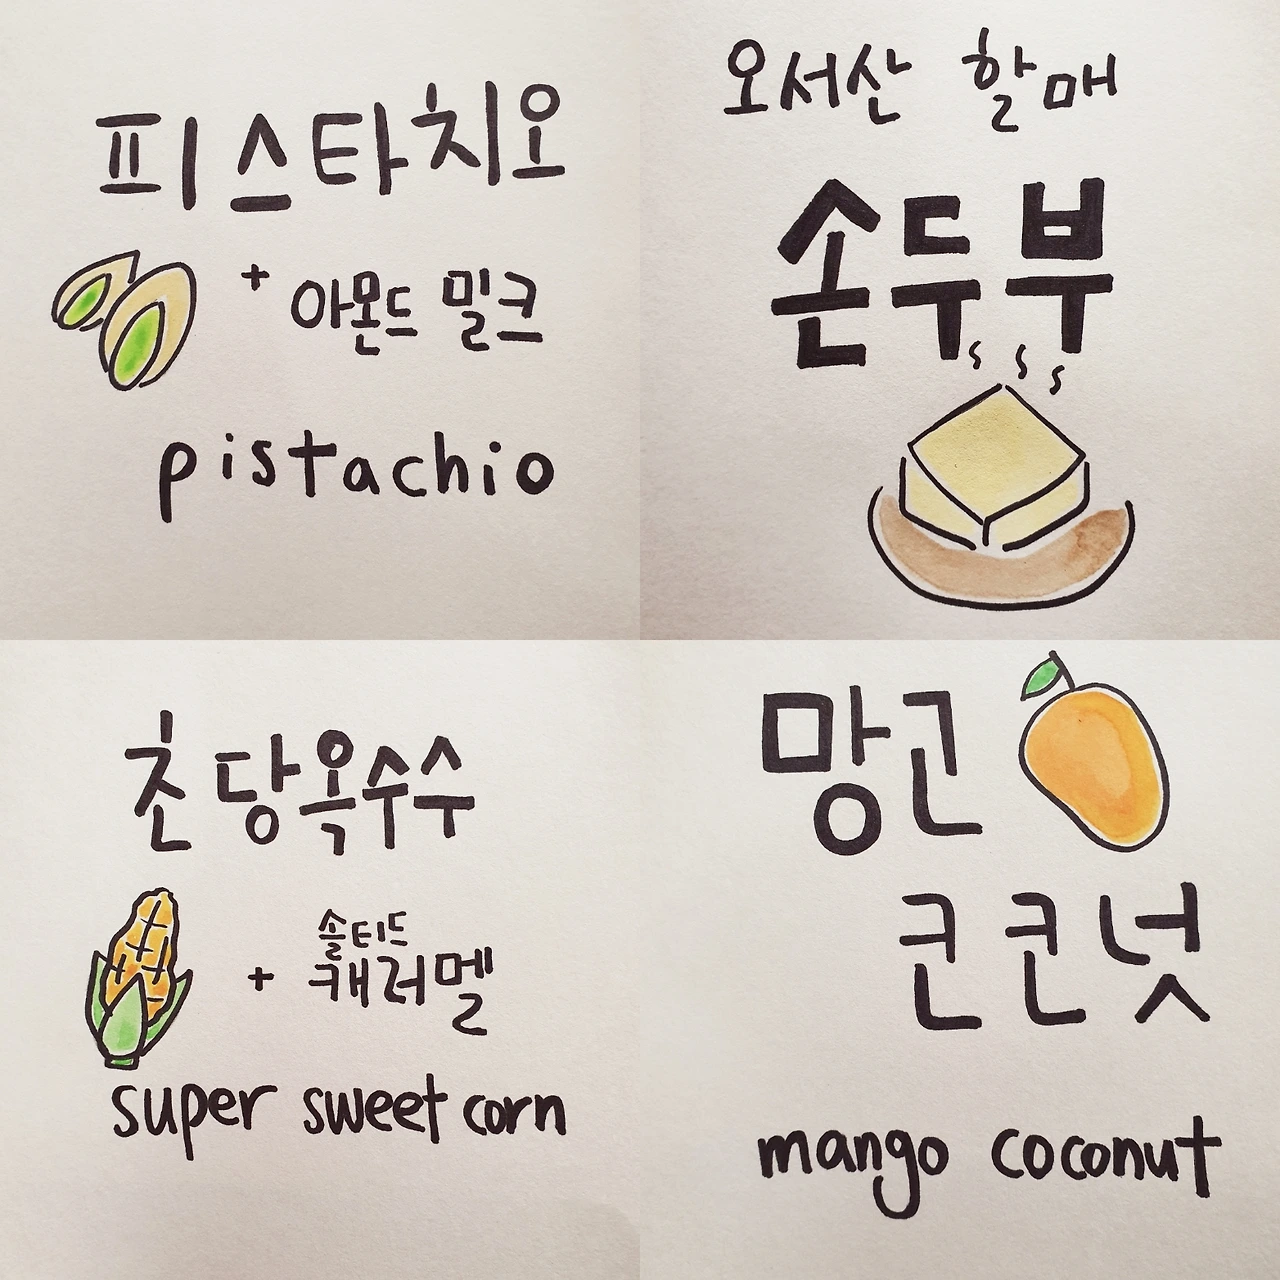 피스타치오
+ 아몬드 밀크
pistachio
오서산 할매
손두부
초당옥수수
+ 솔티드
캐러멜
super sweet corn
망고
코코넛
mango coconut